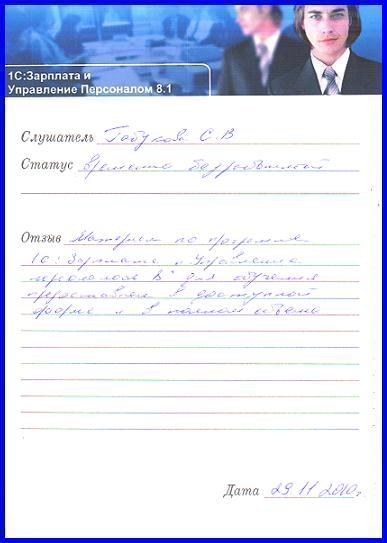 1С:Зарплата и
Управление Персоналом 8.1
Слушатель Габукова С.В
Статус временно безработный
Отзыв Материал по программе
1С: Зарплата и Управление
персоналом 8" для обучения
предоставлен в доступной
форме и в полном объеме
Дата 29.11.2010г.